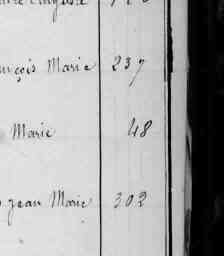 Auguste
ançois Marie 237
Marie 48
Jean Marie 302